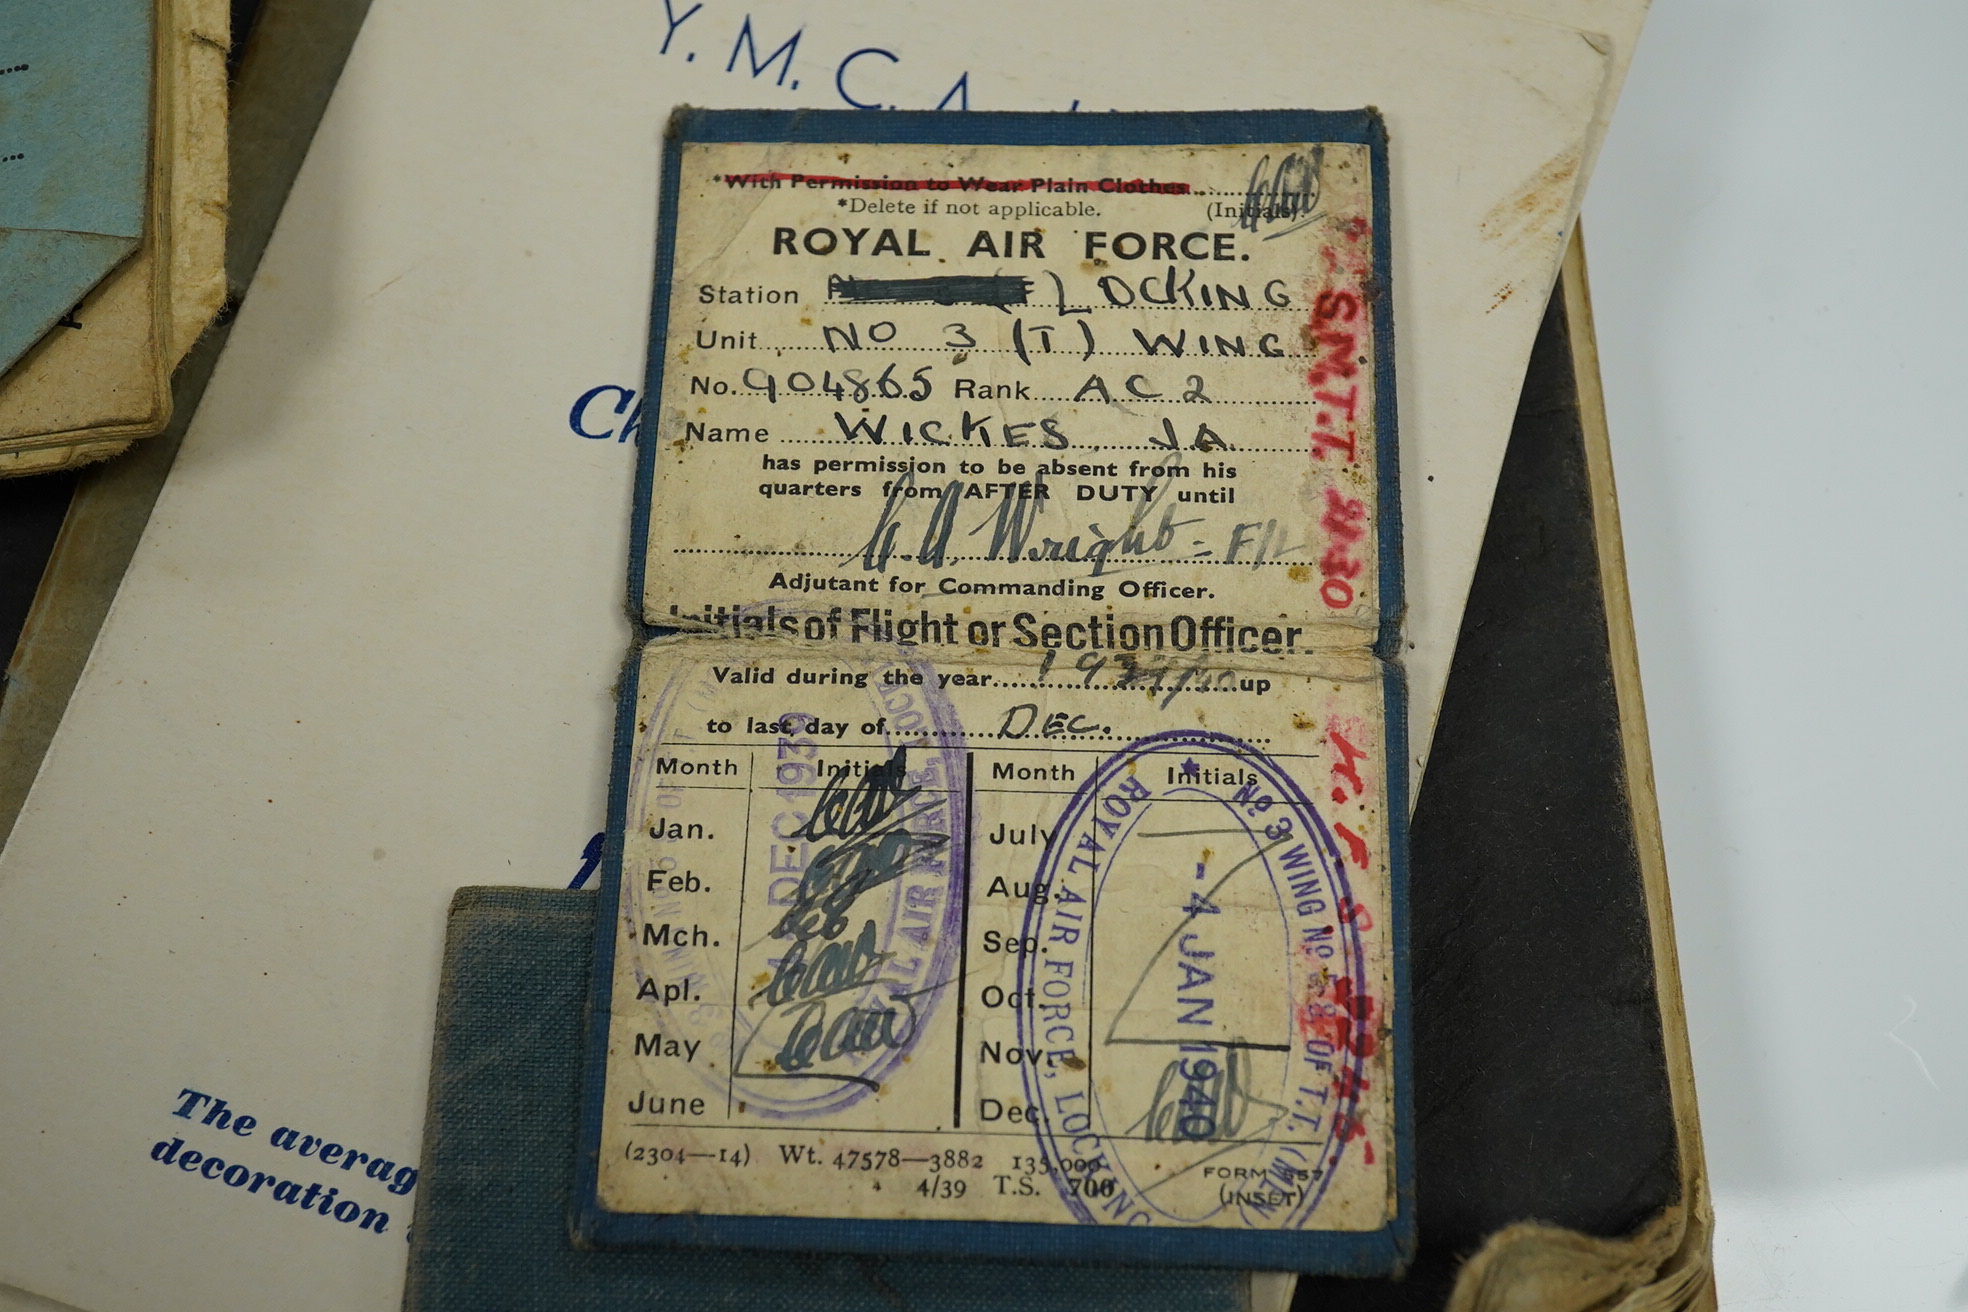 Y. M. C. A.
*With Permission to Wear Plain Clothes
*Delete if not applicable. (Initials).
ROYAL AIR FORCE.
Station LOCKING
Unit NO 3 (T) WING
No. 904865 Rank AC 2
Name WICKES JA.
has permission to be absent from his
quarters from AFTER DUTY until
C.A. Wright - F/L
Adjutant for Commanding Officer.
Initials of Flight or Section Officer.
Valid during the year 1939/40 up
to last day of DEC.
Month Initials Month Initials
Jan. July
Feb. Aug.
Mch. Sep.
Apl. Oct.
May Nov.
June Dec.
(2304—14) Wt. 47578—3882 135,000
4/39 T.S. 700
FORM 557
(INSET)
S.M.T.T.
DEC 1939
ROYAL AIR FORCE, LOCKING
No. 3 WING No. 5 & 8 OF T.T.
- 4 JAN 1940
ROYAL AIR FORCE, LOCKING
Ch
The averag
decoration